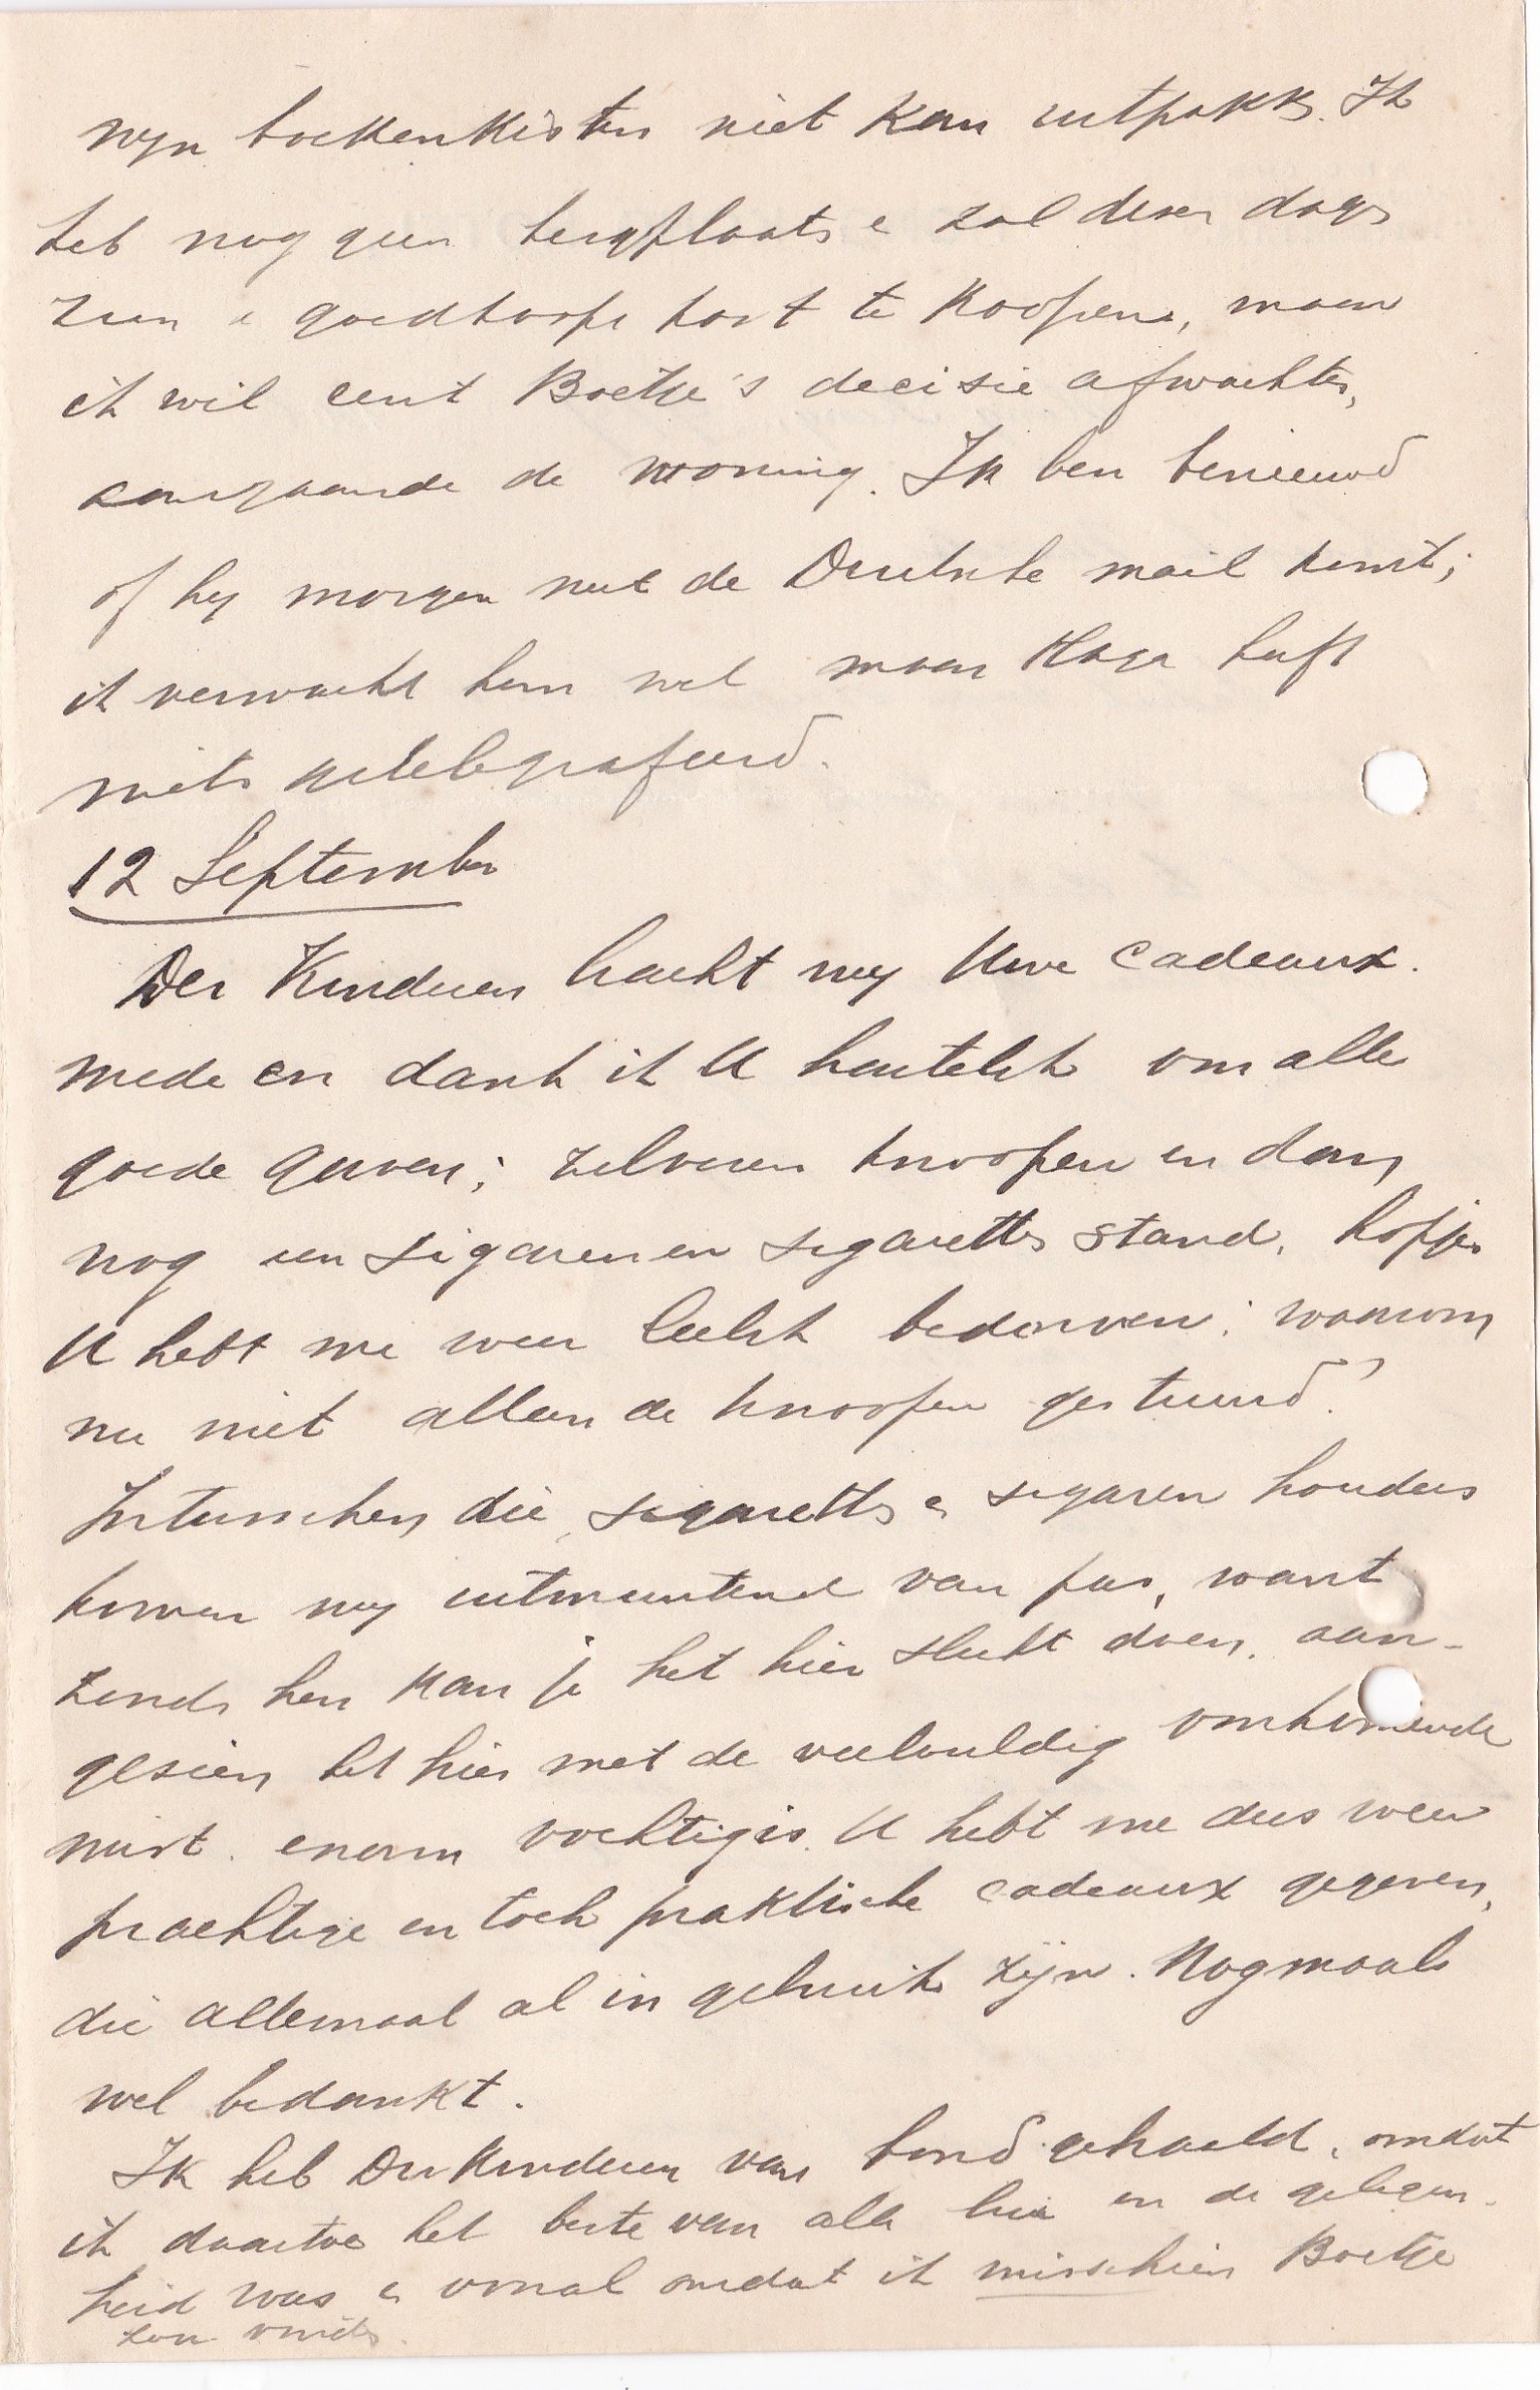 mijn boekenkisten niet kan uitpakken. Ik
heb nog geen bergplaats en zal dezer dagen
zien e goedkoope kast te koopen, maar
ik wil eerst Boetje's decisie afwachten,
aangaande de woning. Ik ben benieuwd
of hij morgen met de Duitsche mail komt;
ik verwacht hem wel maar Haga heeft
niets getelegrafeerd.
12 September
Der Kinderen bracht mij Uwe cadeaux
mede en dank ik U hartelijk om alle
goede gaven; zilveren knoopen en dan
nog een sigaren en sigaretten stand.
U hebt me weer leelijk bedorven; waarom
nu niet alleen de knoopen gestuurd?
Intusschen die sigaretten en sigaren houders
komen mij uitmuntend van pas, want
zonder hen kan je het hier slecht doen, aan-
gezien het hier met de veelvuldig omkomende
mist enorm vochtig is. U hebt me dus weer
prachtige en toch praktische cadeaux gegeven,
die allemaal al in gebruik zijn. Nogmaals
wel bedankt.
Ik heb Der Kinderen van boord gehaald, omdat
ik daartoe het beste van alle hier in de gelegen-
heid was en vooral omdat ik misschien Boetje
zou vinden.